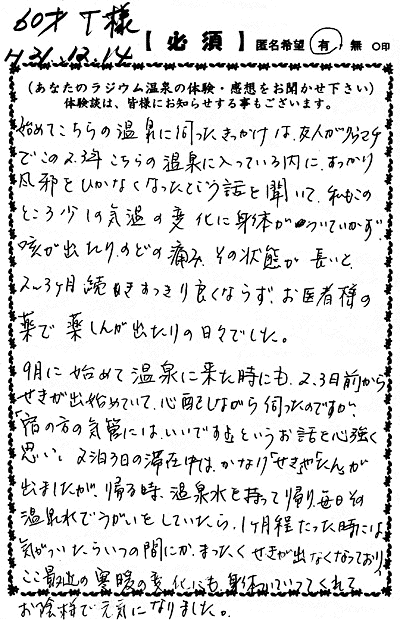 60才 T様
H31.12.14
【必須】 匿名希望 有・無 ○印
(あなたのラジウム温泉の体験・感想をお聞かせ下さい)
体験談は、皆様にお知らせする事もございます。
始めてこちらの温泉に伺ったきっかけは、友人が
でこの2.3年こちらの温泉に入っている内に、すっかり
風邪をひかなくなったという話を聞いて、私もこの
ところ少しの気温の変化に身体がついていかず
咳が出たり、のどの痛み、その状態が長いと
2~3ヶ月続きすっきり良くならず、お医者様の
薬で薬しんが出たりの日々でした。
9月に始めて温泉に来た時にも、2.3日前から
せきが出始めていて、心配しながら伺ったのですが、
「宿の方の気管には、いいですよというお話を心強く
思い、2泊3日の滞在中は、かなり「せき」や「たん」が
出ましたが、帰る時、温泉水を持って帰り、毎日その
温泉水でうがいをしていたら、1ヶ月程たった時には
気がついたらいつの間にか、まったくせきが出なくなっており、
ここ最近の寒暖の変化にも、身体がついてってくれて、
お陰様で元気になりました。